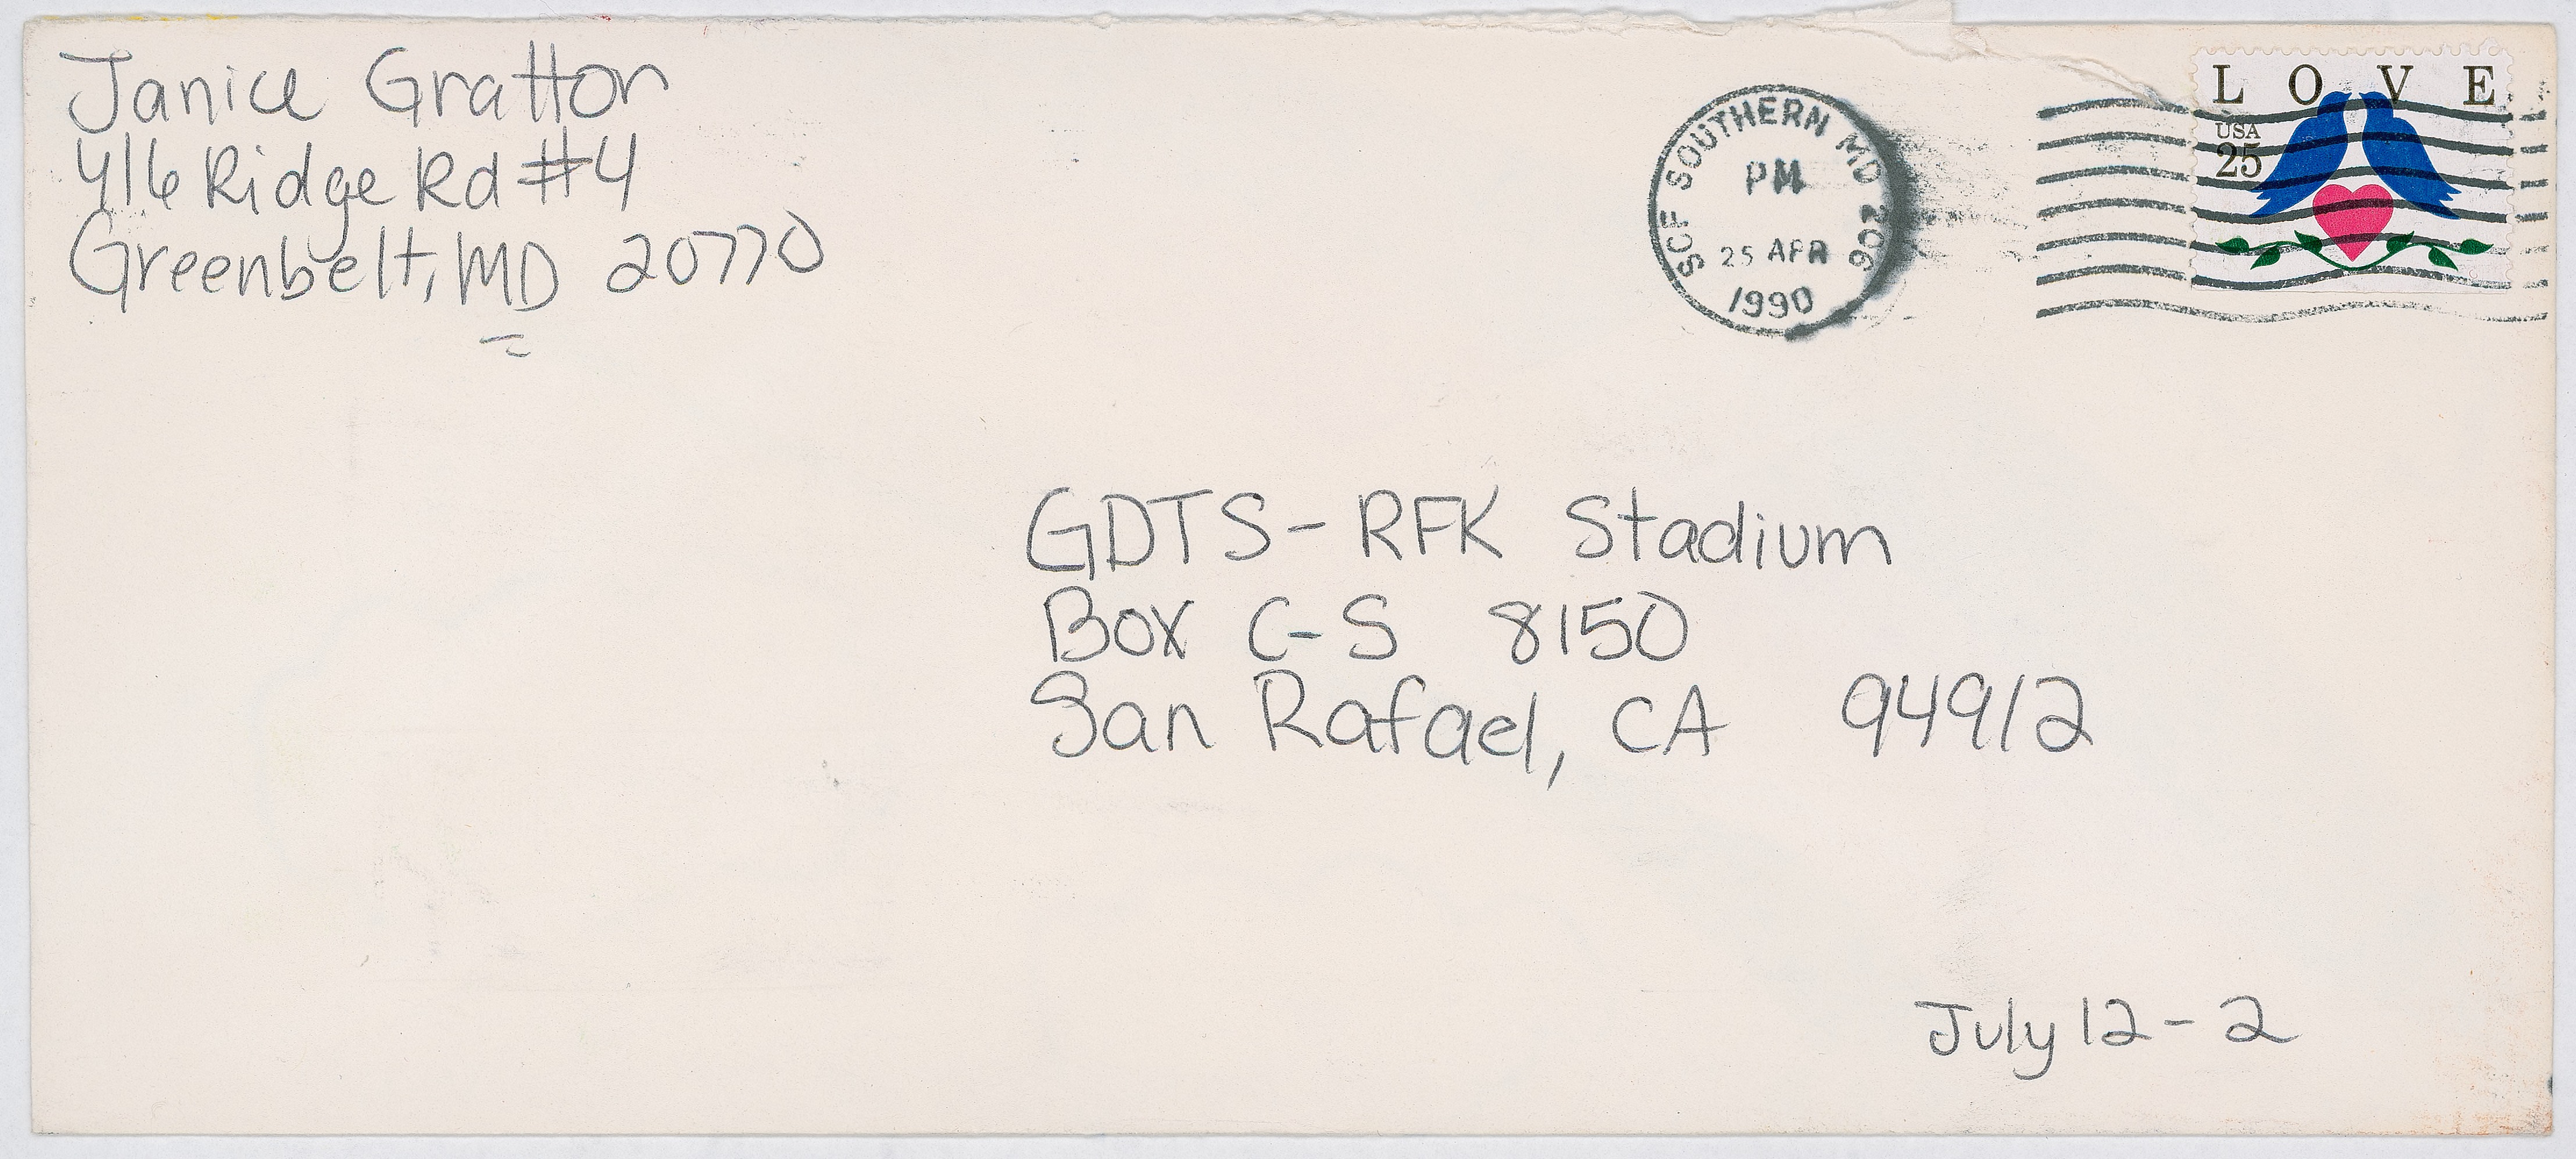 Janice Gratton
416 Ridge Rd #4
Greenbelt, MD 20770
SCF SOUTHERN MD 206
PM
25 APR
1990
LOVE
USA
25
GDTS - RFK Stadium
Box C-S 8150
San Rafael, CA 94912
July 12 - 2